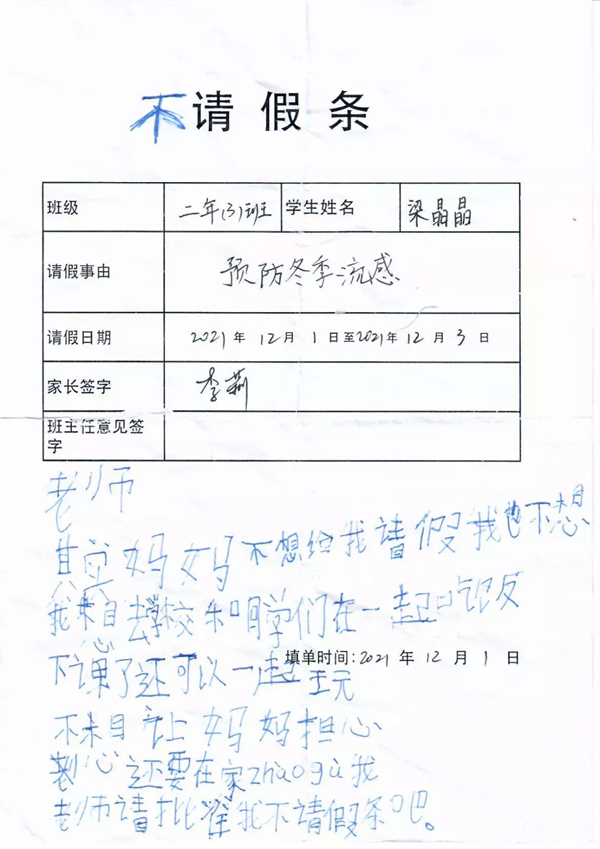 不请假条
班级 二年(3)班 学生姓名 梁晶晶
请假事由 预防冬季流感
请假日期 2021年12月1日至2021年12月3日
家长签字 李莉
班主任意见签
字
老师
其实妈妈不想给我请假我也不想
我想去学校和同学们在一起吃饭
下课了还可以一起玩
填单时间:2021年12月1日
不想让妈妈担心
还要在家zhaogù我
老师请批准我不请假条吧。